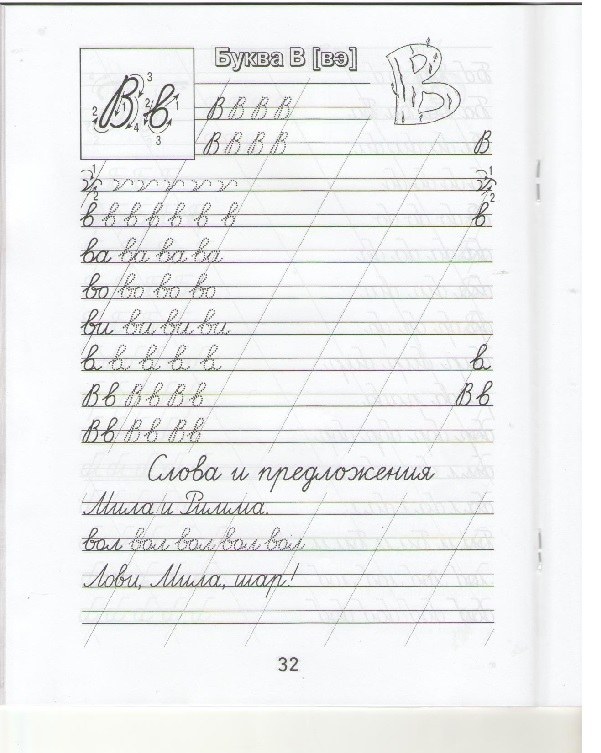 Буква В [вэ]
В в
1 2 3 4 1 2 3
В В В В
В В В В В
1 2 1 2
в в в в в в в в
ва ва ва ва
во во во во
ви ви ви ви
в в в в в в
Вв Вв Вв Вв
Вв Вв Вв
Слова и предложения
Мила и Римма.
вол вол вол вол вол
Лови, Мила, шар!
32